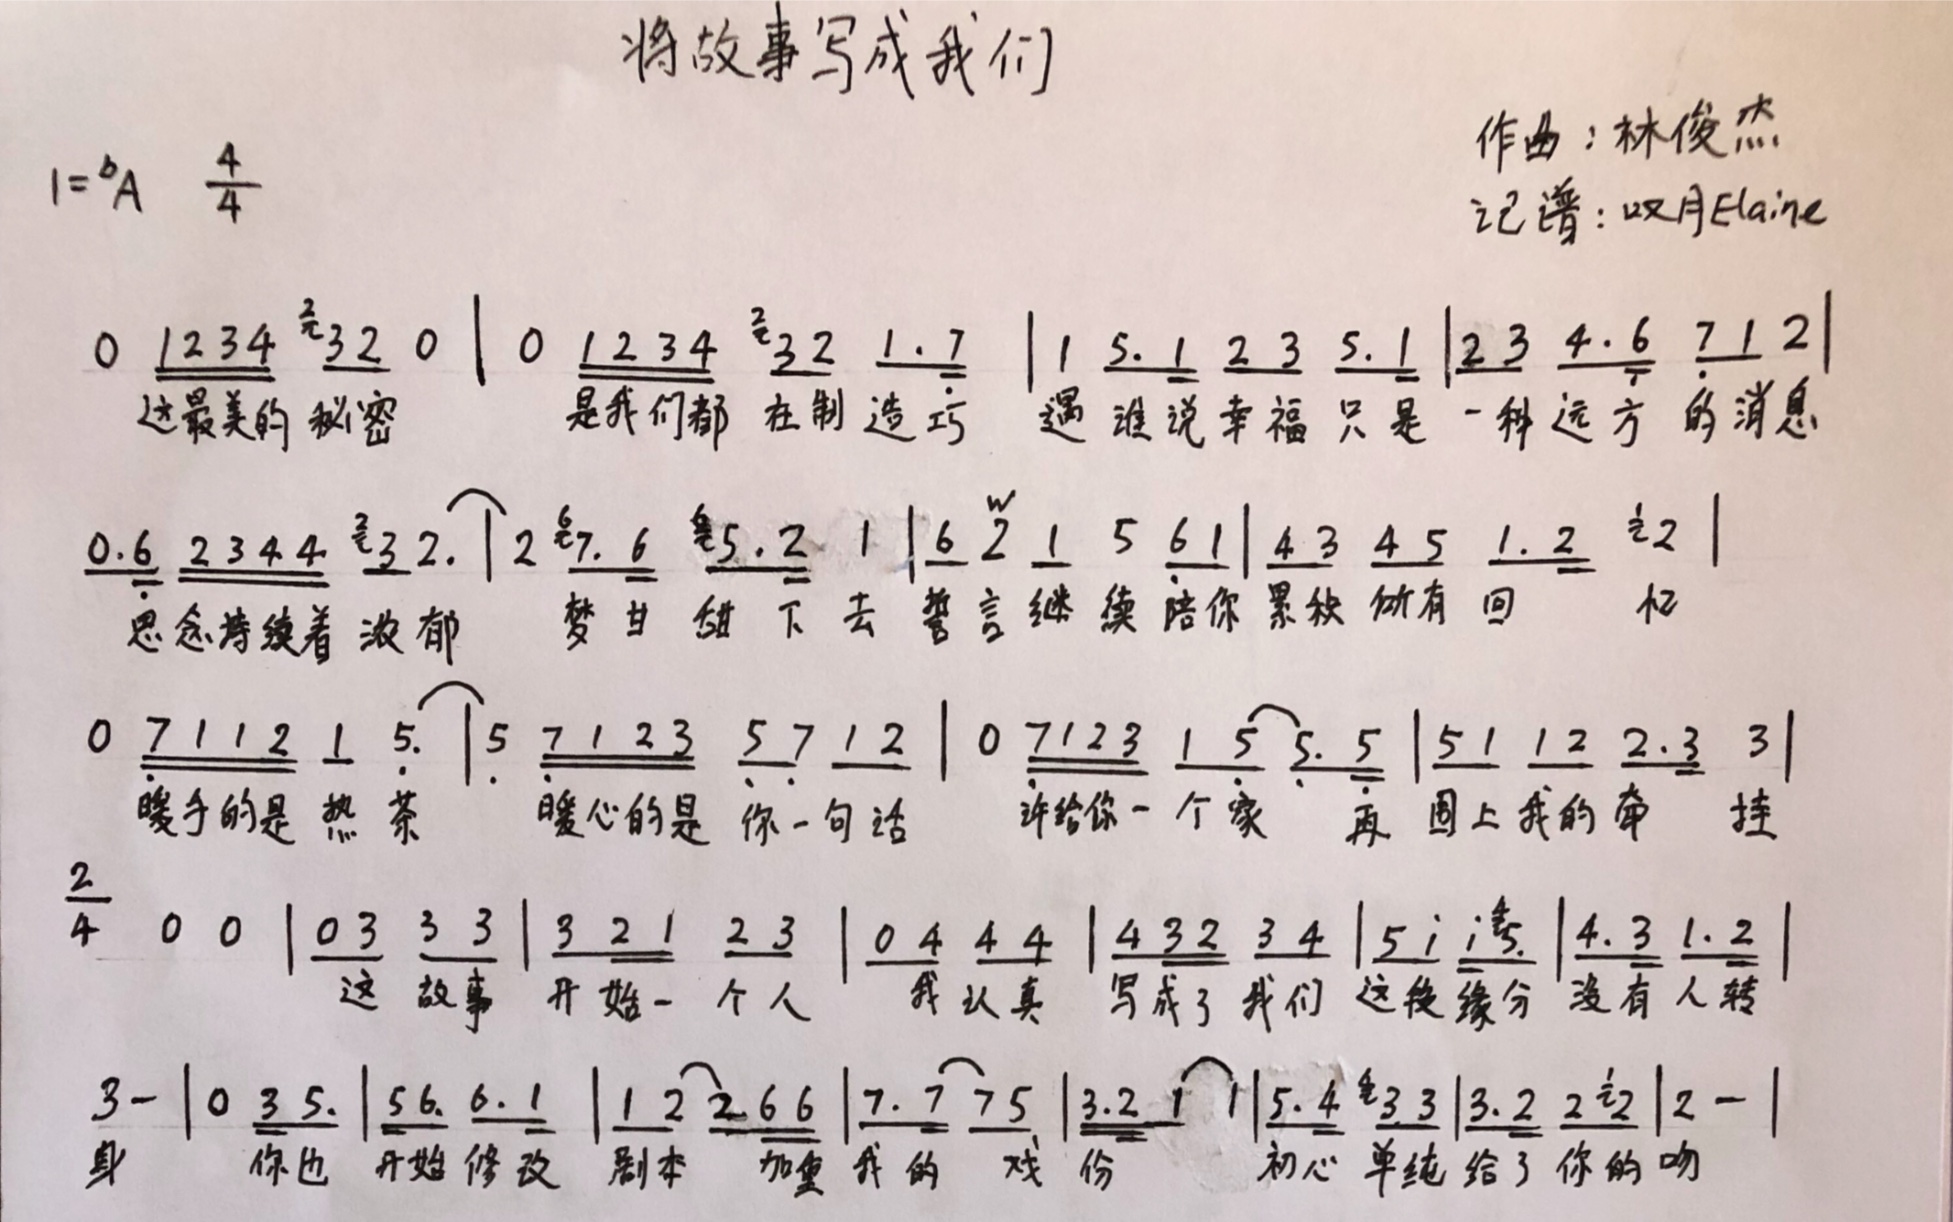 将故事写成我们
作曲：林俊杰
1=♭A 4/4
记谱：叹月Elaine
0 1234 ²32 0 | 0 1234 ²32 1.7 | 1 5.1 23 5.1 | 23 4.6 71 2 |
这最美的 秘密 是我们都 在制 造 巧 遇 谁说幸福只是 一种远方 的消息
0.6 2344 ²3 2. | 2 ⁶7.6 ⁶5.2 1 | 6 2 1 5 61 | 43 45 1.2 ¹2 |
思念持续着 浓郁 梦甘甜下去 誓言继续陪你 累积所有回 忆
0 7112 1 5. | 5 7123 57 12 | 0 7123 15 5.5 | 51 12 2.3 3 |
暖手的是 热 茶 暖心的是 你一句话 许给你一 个家 再 围上我的牵 挂
2/4 0 0 | 03 33 | 3 21 23 | 04 44 | 432 34 | 5i i⁴5. | 4.3 1.2 |
这 故事 开始一 个人 我 认真 写成了 我们 这段缘分 没有人转
3 - | 0 35. | 56. 6.1 | 12 266 | 7.7 75 | 3.2 1 1 | 5.4 33 | 3.2 2¹2 | 2 - |
身 你也 开始 修改 剧本 加重 我的 戏 份 初心 单纯 给了 你的 吻